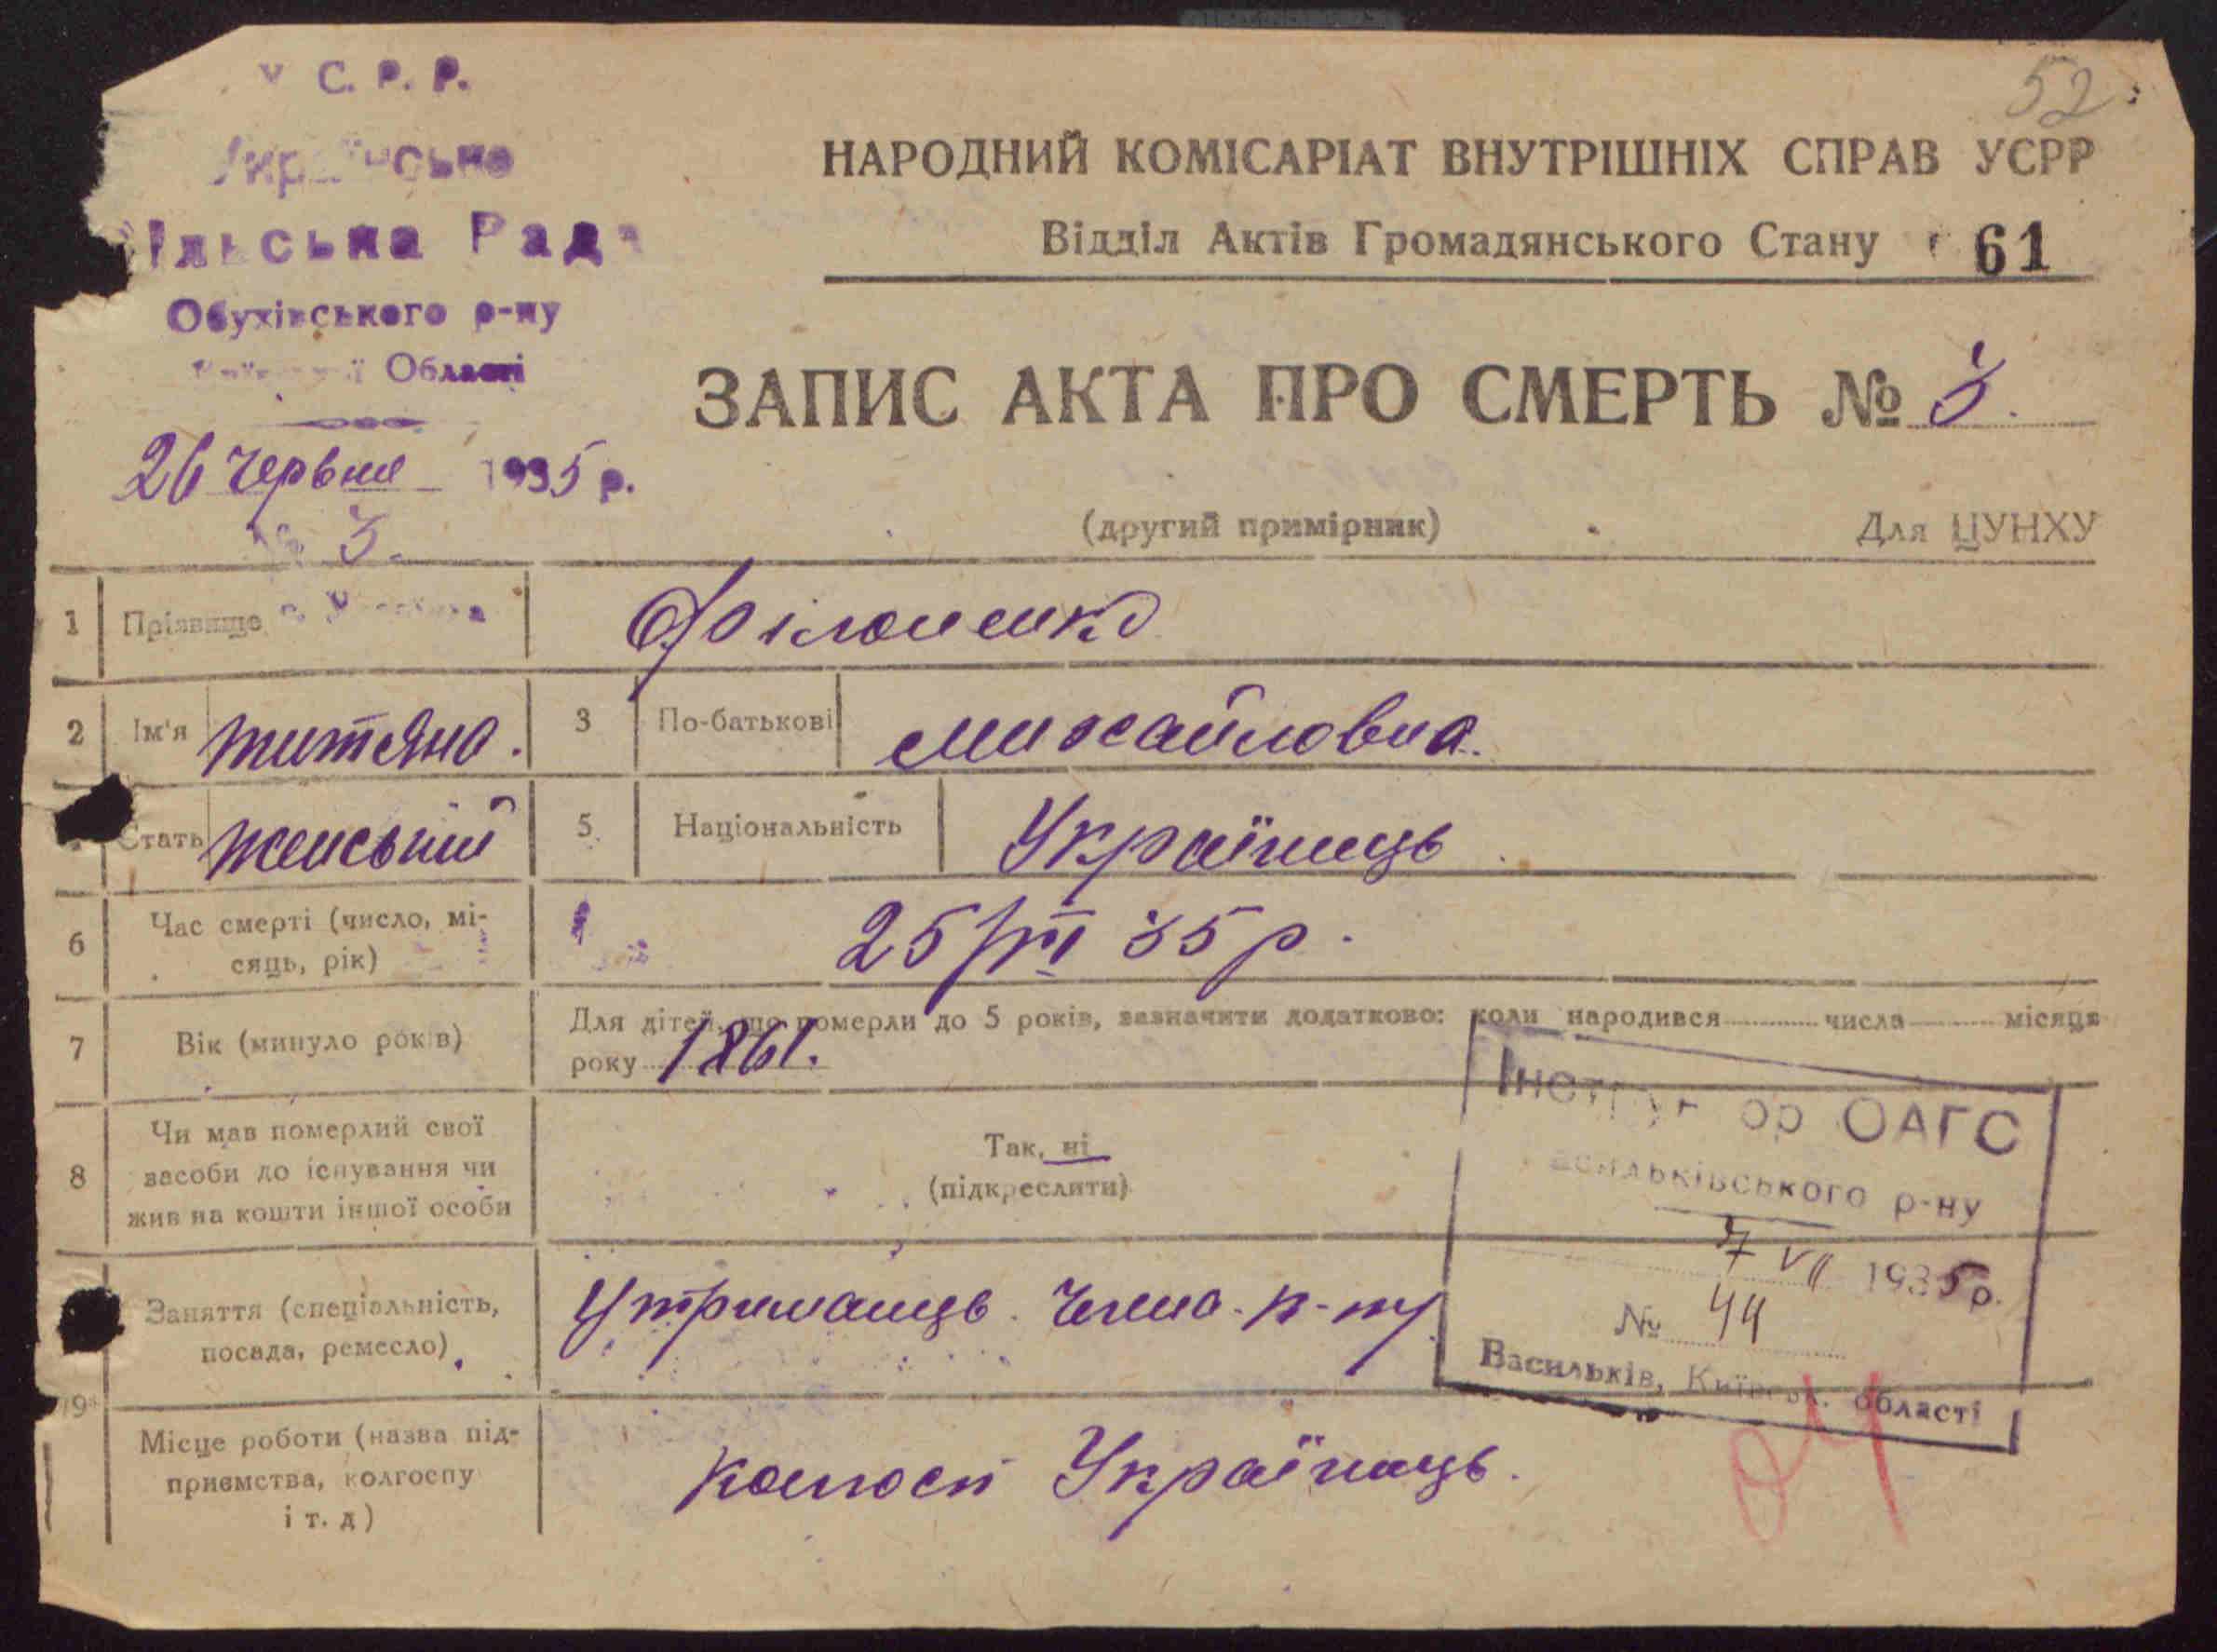 У С. Р. Р.
Українська
Сільська Рада
Обухівського р-ну
Київської Області
26 Червня 1935 р.
№ 3.
52
НАРОДНИЙ КОМІСАРІАТ ВНУТРІШНІХ СПРАВ УСРР
Відділ Актів Громадянського Стану
61
ЗАПИС АКТА ПРО СМЕРТЬ № 3.
(другий примірник) Для ЦУНХУ
1 Прізвище Філоненко
2 Ім'я Титяна. 3 По-батькові Михайловна.
Стать женський 5. Національність Українець
6 Час смерті (число, мі-
сяць, рік) 25/VI 35 р.
7 Вік (минуло років) Для дітей, що померли до 5 років, зазначити додатково: коли народився числа місяця
року 1861.
8 Чи мав померлий свої
засоби до існування чи
жив на кошти іншої особи
Так, ні
(підкреслити)
Інструктор ОАГС
Васильківського р-ну
7 VII 1935 р.
№ 44
Васильків, Київськ. області
9 Заняття (спеціяльність,
посада, ремесло)
Утриманець. Члена. к-пу
Місце роботи (назва під-
приємства, колгоспу
і т. д)
Колгосп Українець.
04